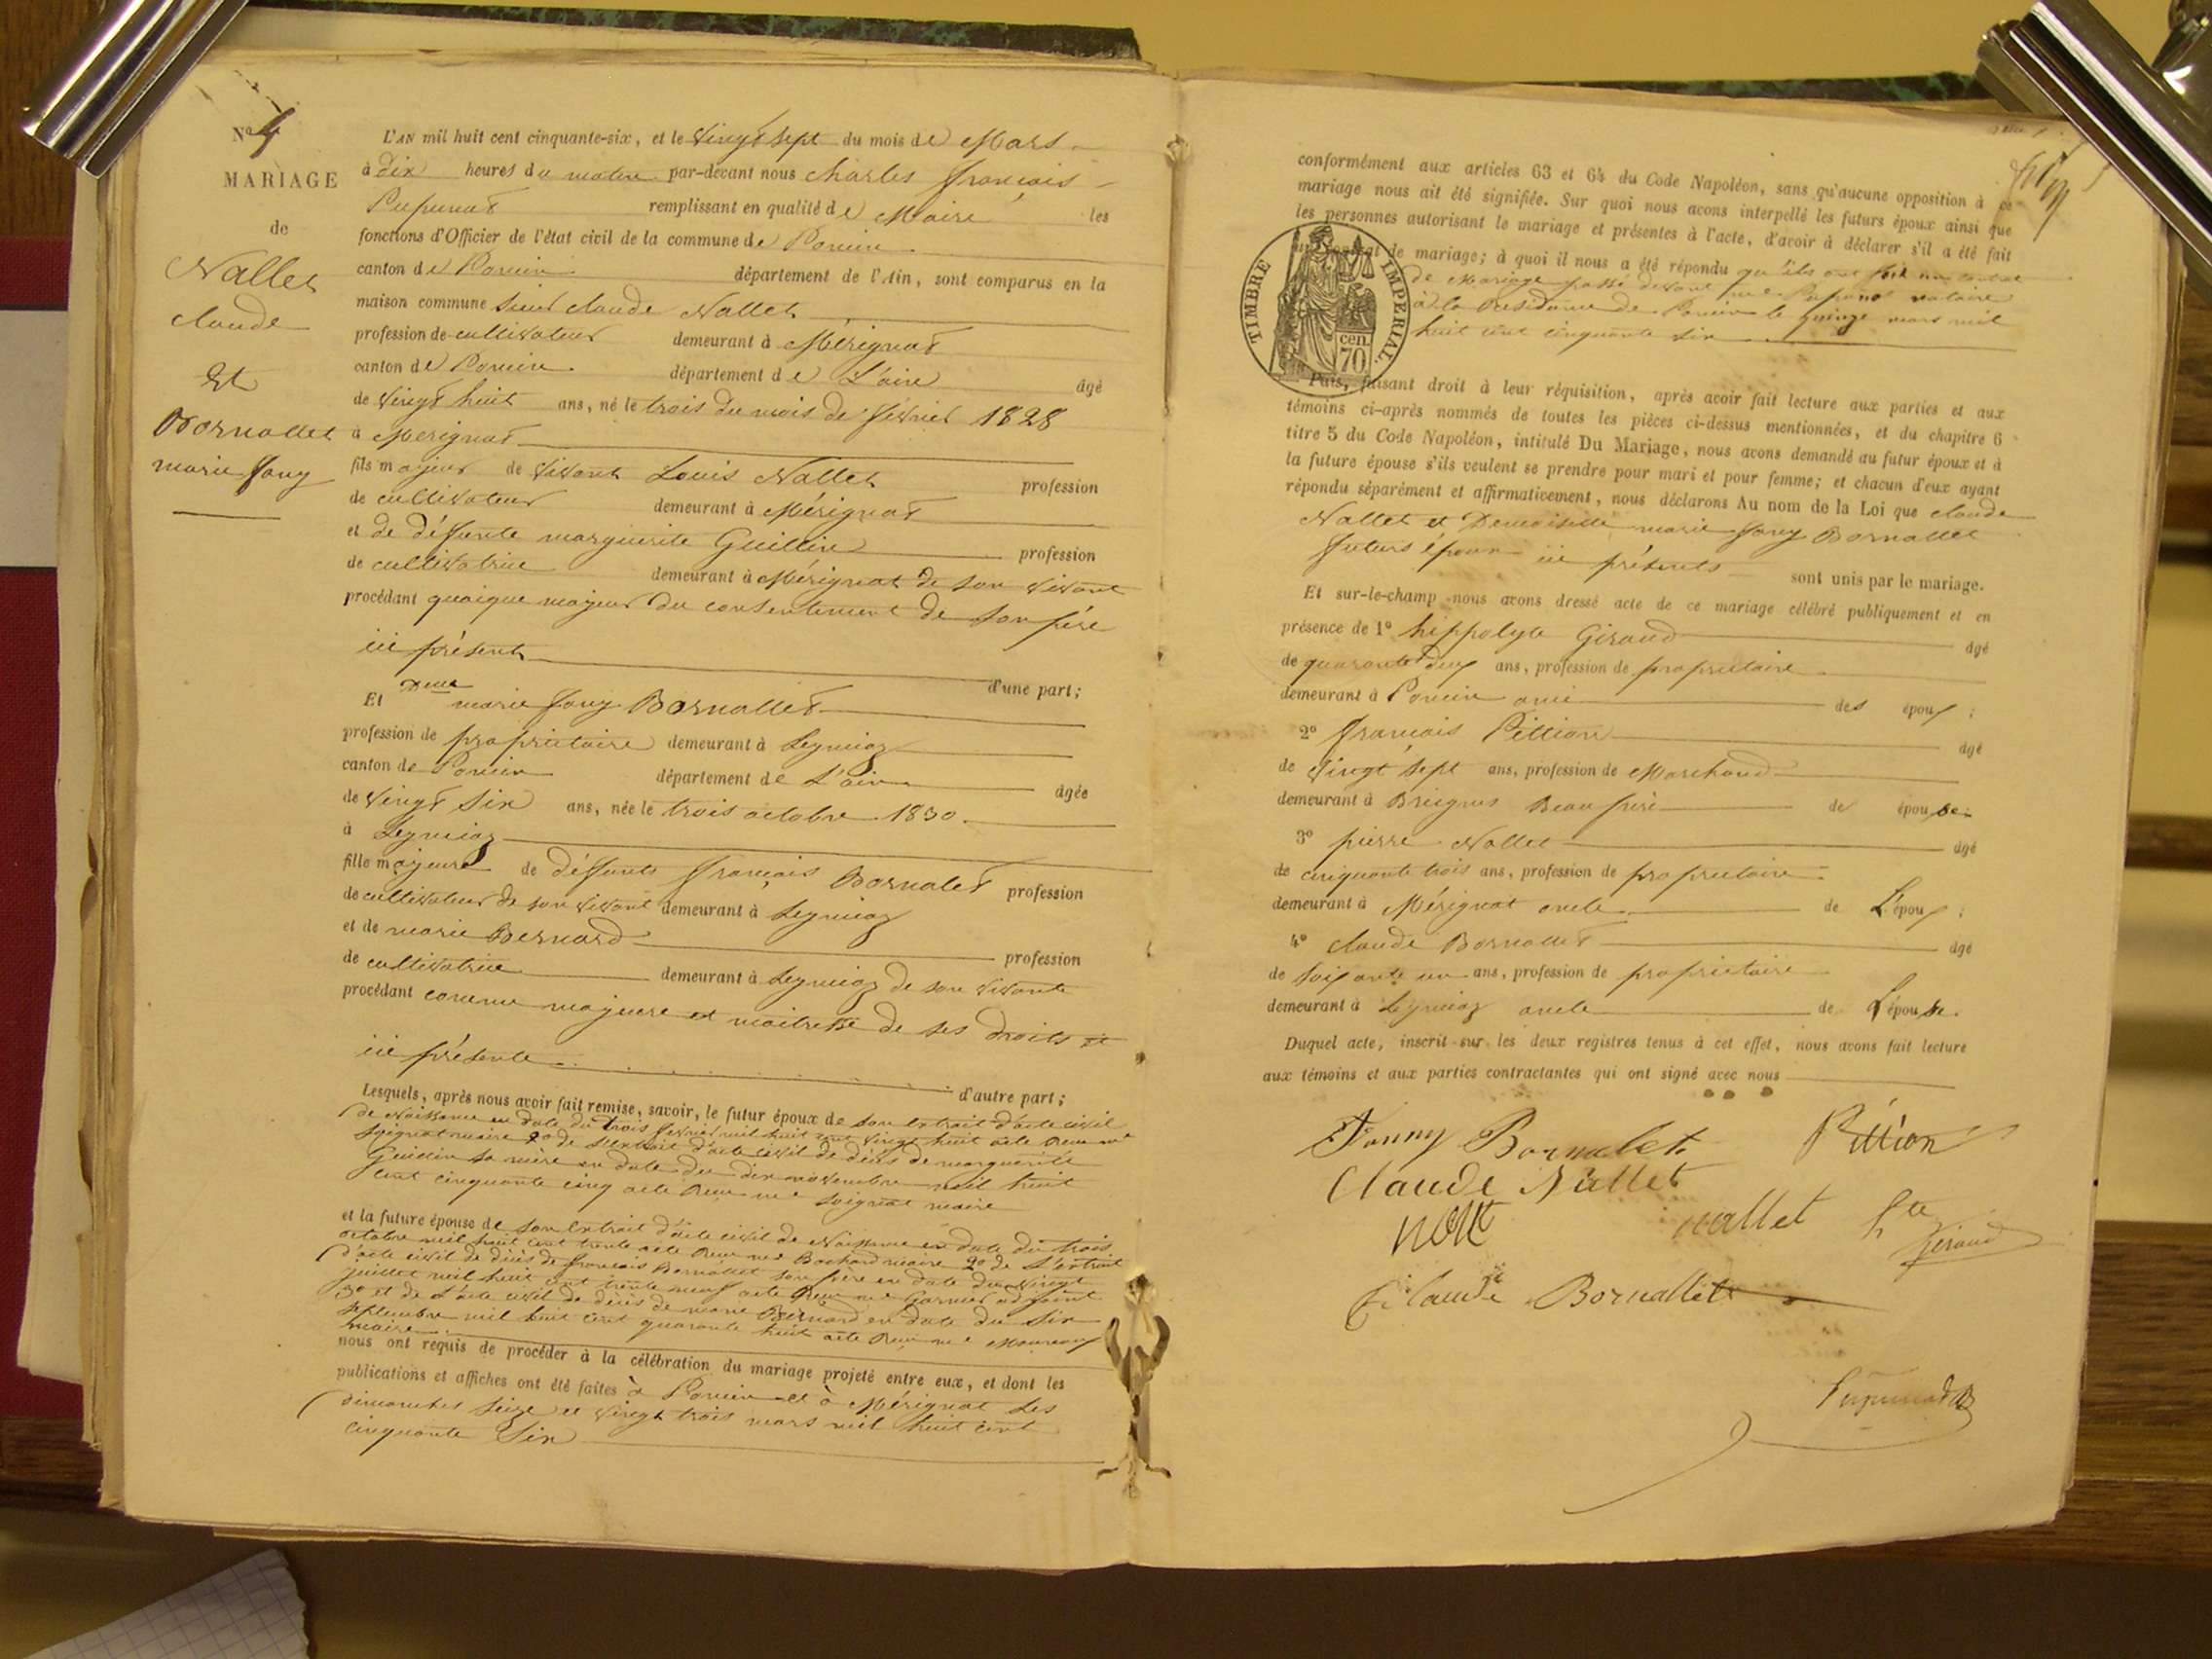 N° 4
MARIAGE
de
Nallet
Claude
Et
Bornallet
marie fany
L'AN mil huit cent cinquante-six, et le vingt sept du mois de Mars
à dix heures du matin par-devant nous Charles françois
remplissant en qualité de Maire les
fonctions d'Officier de l'état civil de la commune de Poncin
canton de Poncin département de l'Ain, sont comparus en la
maison commune Sieur claude Nallet
profession de cultivateur demeurant à Mérignat
canton de Poncin département de L'ain âgé
de vingt huit ans, né le trois du mois de février 1828
à Merignat
fils majeur de vivant Louis Nallet profession
de cultivateur demeurant à Mérignat
et de déffunte marguerite Guillin profession
de cultivatrice demeurant à Mérignat de son vivant
procédant quoique majeur du consentement de son père
ici présent d'une part;
Et Delle marie fany Bornallet
profession de propriétaire demeurant à Leymiaz
canton de Poncin département de L'ain âgée
de vingt six ans, née le trois octobre 1830
à Leymiaz
fille majeure de déffunts françois Bornalet profession
de cultivateur de son vivant demeurant à Leymiaz
et de marie Bernard profession
de cultivatrice demeurant à Leymiaz de son vivante
procédant comme majeure et maitresse de ses droits et
ici présente d'autre part;
Lesquels, après nous avoir fait remise, savoir, le futur époux de son extrait d'acte civil
de Naissance en date du trois février mil huit cent vingt huit
maire 2° de l'extrait d'acte civil de décès de marguerite
Guillin sa mère en date du dix novembre mil huit
cent cinquante cinq maire
et la future épouse de son extrait d'acte civil de Naissance en date du trois
octobre mil huit cent trente Bochard maire 2° de L'extrait
d'acte civil de décès de françois Bornallet son père en date du vingt
juillet mil huit cent trente neuf adjoint
3° et de L'acte civil de décès de marie Bernard en date du six
septembre mil huit cent quarante huit
maire
nous ont requis de procéder à la célébration du mariage projeté entre eux, et dont les
publications et affiches ont été faites à Poncin et à Mérignat les
dimanches seize et vingt trois mars mil huit cent
cinquante six
conformément aux articles 63 et 64 du Code Napoléon, sans qu'aucune opposition à ce
mariage nous ait été signifiée. Sur quoi nous avons interpellé les futurs époux ainsi que
les personnes autorisant le mariage et présentes à l'acte, d'avoir à déclarer s'il a été fait
de mariage; à quoi il nous a été répondu qu'ils ont fait un contrat
de Mariage passé devant me notaire
à la Residence de Poncin le quinze mars mil
huit cent cinquante six
TIMBRE IMPÉRIAL
cen.
70
Puis, faisant droit à leur réquisition, après avoir fait lecture aux parties et aux
témoins ci-après nommés de toutes les pièces ci-dessus mentionnées, et du chapitre 6
titre 5 du Code Napoléon, intitulé Du Mariage, nous avons demandé au futur époux et à
la future épouse s'ils veulent se prendre pour mari et pour femme; et chacun d'eux ayant
répondu séparément et affirmativement, nous déclarons Au nom de la Loi que claude
Nallet et Demoiselle marie fany Bornallet
futurs époux ici présents sont unis par le mariage.
Et sur-le-champ nous avons dressé acte de ce mariage célébré publiquement et en
présence de 1° hippolyte Giraud âgé
de quarante deux ans, profession de propriétaire
demeurant à Poncin ami des époux;
2° françois Pittion âgé
de vingt sept ans, profession de Marchand
demeurant à Beau frère de épouse;
3° pierre Nallet âgé
de cinquante trois ans, profession de propriétaire
demeurant à Mérignat oncle de L'époux;
4° claude Bornallet âgé
de soixante un ans, profession de propriétaire
demeurant à Leymiaz oncle de L'épouse.
Duquel acte, inscrit sur les deux registres tenus à cet effet, nous avons fait lecture
aux témoins et aux parties contractantes qui ont signé avec nous
Fanny Bornalet Pittion
Claude Nallet
nallet hte Giraud
Claude Bornallet